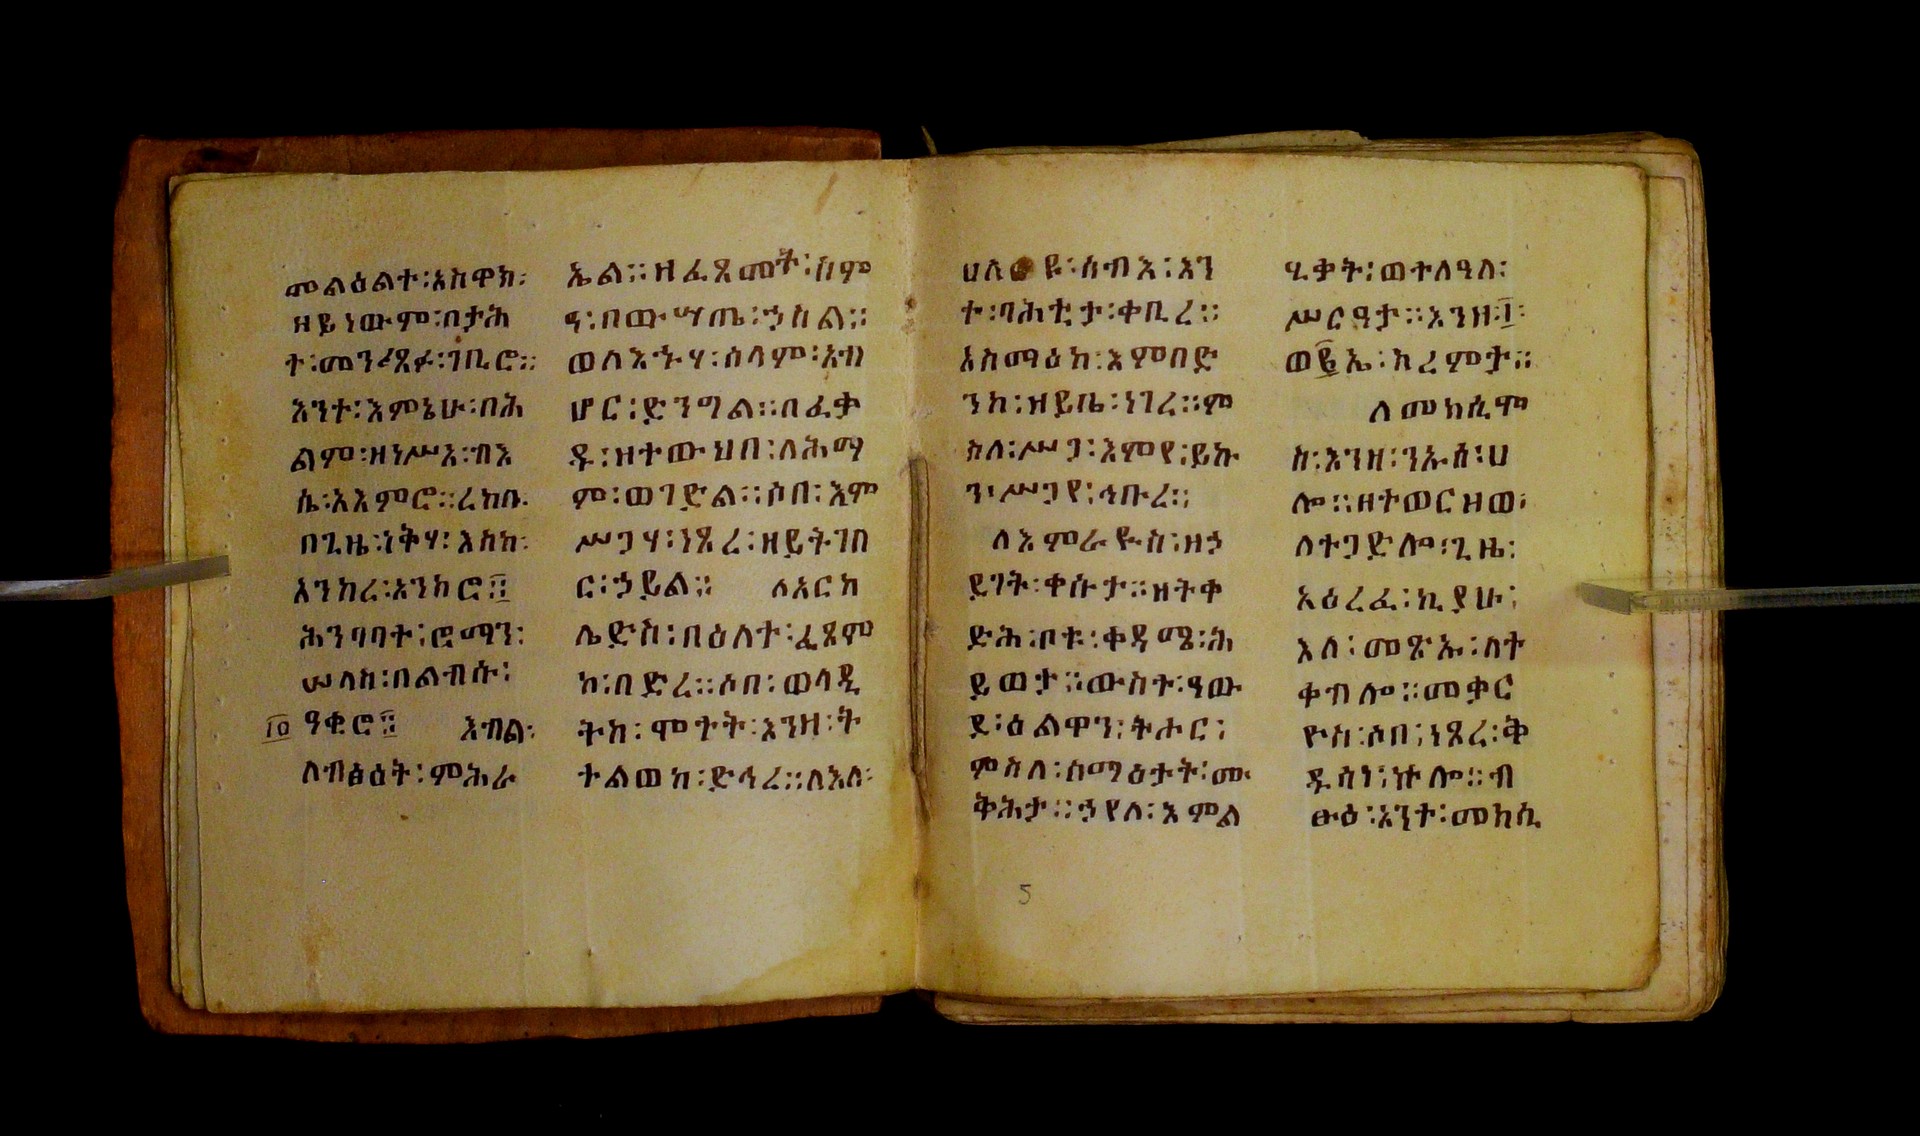 መልዕልተ፡አስዋክ፡
ዘይነውም፡በታሕ
ተ፡መንኰጸፉ፡ገቢሮ።
እንተ፡እምኔሁ፡በሕ
ልም፡ዘነሥአ፡ብእ
ሴ፡አእምሮ።ረከቡ፡
በጊዜ፡ነቅሃ፡እስከ፡
አንከረ፡አንክሮ፨
ሕንባባት፡ሮማን፡
ሠላስ፡በልብሱ፡
ዓቂሮ፨ እብል፡
ለብፅዕት፡ምሕራ
ኤል።ዘፈጸመት፡ስም
ዓ፡በውሣጤ፡ኃስል።
ወለእኅሃ፡ሰላም፡አብ
ሆር፡ድንግል።በፈቃ
ዱ፡ዘተውህበ፡ለሕማ
ም፡ወገድል።ሶበ፡እም
ሥጋሃ፡ነጸረ፡ዘይትገበ
ር፡ኃይል። ለአርከ
ሌድስ፡በዕለተ፡ፈጸም
ከ፡በድረ።ሶበ፡ወላዲ
ትከ፡ሞተት፡እንዘ፡ት
ተልወከ፡ድኅረ።ለእለ፡
ተ፡ባሕቲታ፡ቀቢረ።
እስማዕከ፡እምበድ
ንከ፡ዝይቤ፡ነገረ።ም
ስለ፡ሥጋ፡እምየ፡ይኩ
ን፡ሥጋየ፡ኅቡረ።
ለእምራይስ፡ዘኃ
ይገት፡ቀሱታ።ዘትቀ
ድሕ፡ቦቱ፡ቀዳሜ፡ሕ
ይወታ።ውስተ፡ዓው
ደ፡ዕልዋን፡ትሖር፡
ምስለ፡ሰማዕታት፡ሙ
ቅሕታ።ኃየለ፡እምል
ሂቃት፡ወተለዓለ፡
ሥርዓታ።እንዘ፡፲፡
ወ፪ኤ፡ክረምታ።
ለመክሲሞ
ስ፡እንዘ፡ንኡስ፡ሀ
ሎ።ዘተወርዘወ፡
ለተጋድሎ፡ጊዜ፡
አዕረፈ፡ኪያሁ፡
እለ፡መጽኡ፡ለት
ቀብሎ።መቃር
ዮስ፡ሶበ፡ነጸረ፡ቅ
ዱሰነ፡ኵሎ።ብ
ፁዕ፡አንተ፡መክሲ
5